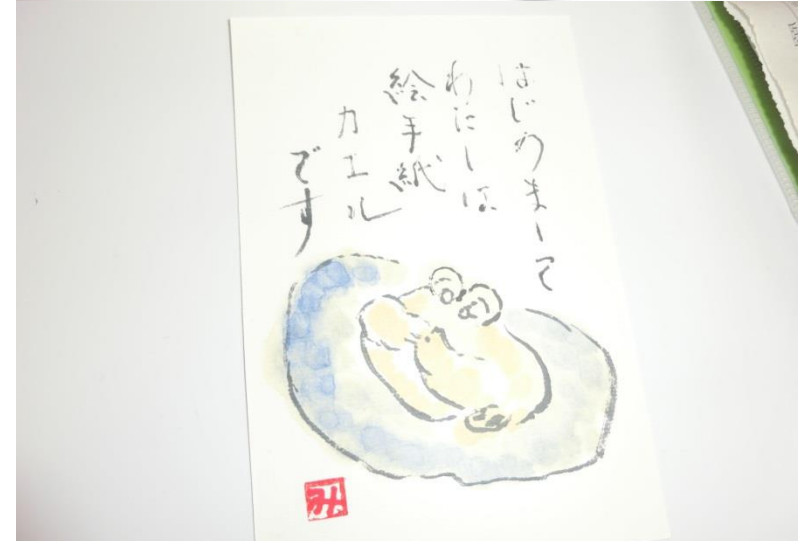 はじめまして
わたしは
絵手紙
カエル
です
み